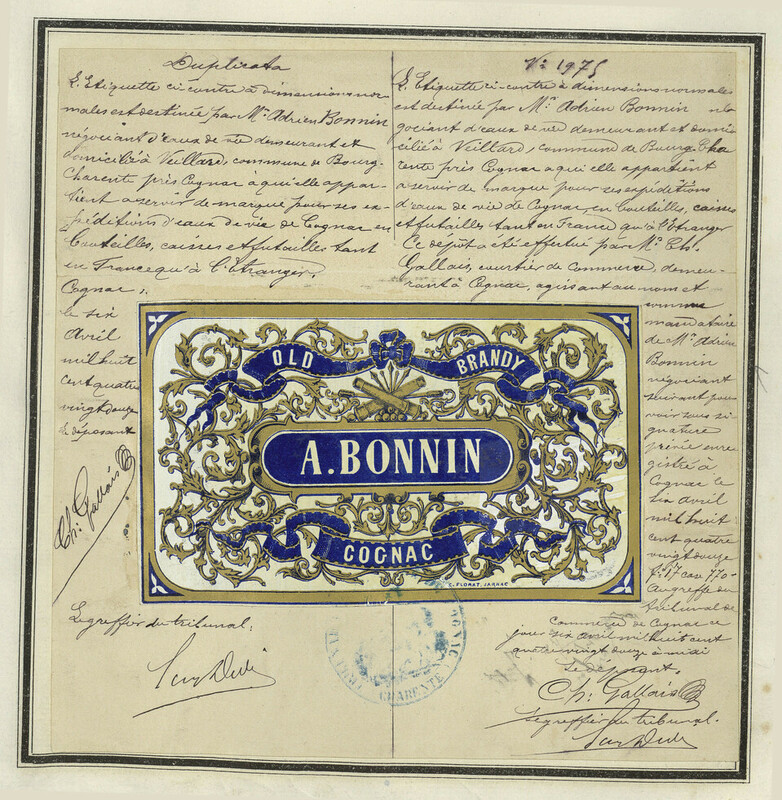 Duplicata
L'Etiquette ci-contre à dimensions nor-
males est destinée par Mr Adrien Bonnin
négociant d'eaux de vie demeurant et
domicilié à Veillard, commune de Bourg-
Charente près Cognac à qui elle appar-
tient a servir de marque pour ses ex-
péditions d'eaux de vie de Cognac en
bouteilles, caisses et futailles tant
en France qu'à l'étranger.
Cognac,
le six
Avril
mil huit
cent quatre
vingt douze
le déposant
Ch: Gallais
Le greffier du tribunal:
No 1975
L'Etiquette ci-contre à dimensions normales
est destinée par Mr Adrien Bonnin né
gociant d'eaux de vie demeurant et domi
cilié à Veillard, commune de Bourg-Cha
rente près Cognac a qui elle appartient
a servir de marque pour ses expéditions
d'eaux de vie de Cognac, en bouteilles, caisses
et futailles tant en France qu'à l'Etranger
Ce dépôt a été effectué par Mr Ch.
Gallais, courtier de commerce, demeu-
rant à Cognac, agissant au nom et
comme
mandataire
de Mr Adrien
Bonnin
négociant
suivant pou
voir sous si
gnature
privée enre
gistré à
Cognac le
six Avril
mil huit
cent quatre
vingt douze
fo 17 case 770
Au greffe du
tribunal de
commerce de Cognac ce
jour six avril mil huit cent
quatre vingt douze à midi
Le déposant.
Ch: Gallais
Le greffier du tribunal.
OLD BRANDY
A. BONNIN
COGNAC
C. FLORAT, JARNAC
CHARENTE